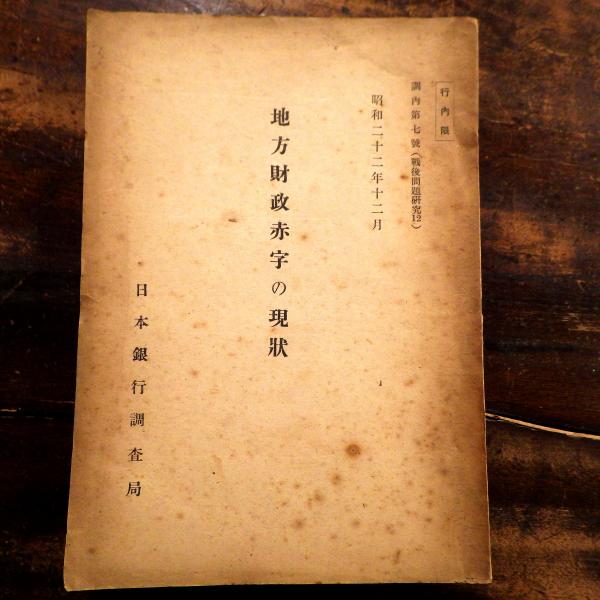 行內限
調內第七號（戰後問題研究12）
昭和二十二年十二月
地方財政赤字の現狀
日本銀行調査局